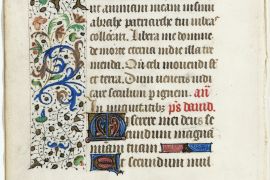 animam meam insinu
abrahe patriarche tui iubeas
collocari. Libera me domine
de morte eterna in die illa tre
menda. Qñ celi mouendi sūt
et terra. Dum ueneris iudi
care seculum p ignem. añ
In iniquitatibus. ps dauid.
Miserere mei deus se
cundum magna
miam tuam
Et secundum mul